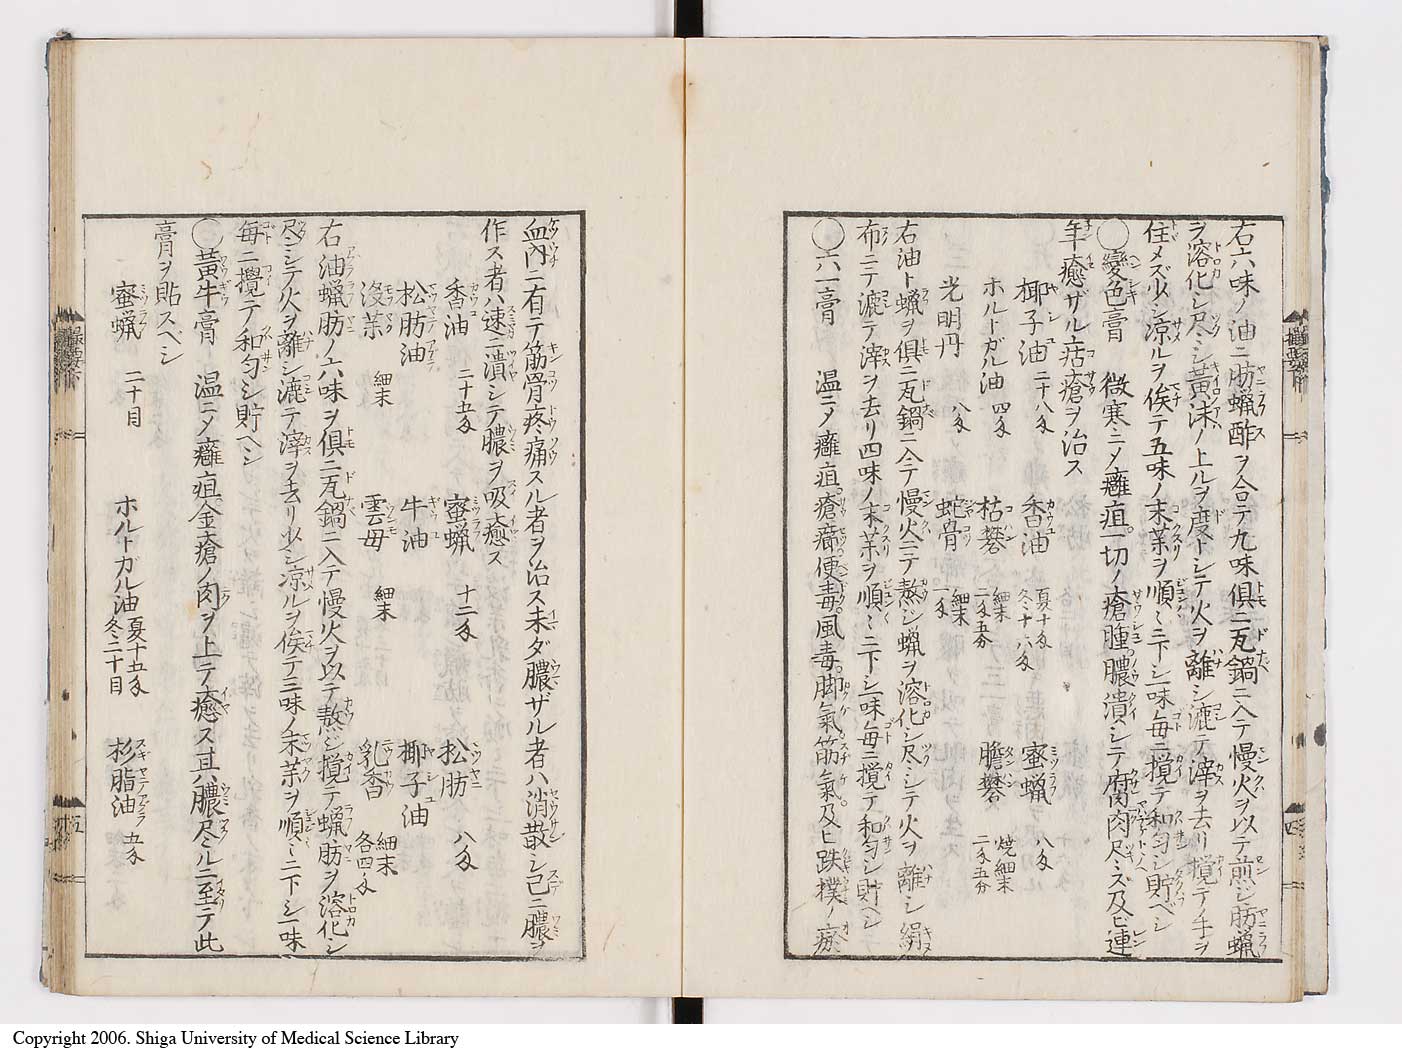 右六味ノ油ニ肪蝋酢ヲ合テ九味倶ニ瓦鍋ニ入テ慢火ヲ以テ煎シ肪蝋
ヲ溶化シ尽シ黄沫ノ上ルヲ度トシテ火ヲ離シ漉テ滓ヲ去リ撹テ手ヲ
住メズ少シ涼ルヲ俟テ五味ノ末薬ヲ順ニ下シ一味毎ニ撹テ和匀シ貯ヘシ
〇變色膏 微寒ニメ癰疽一切ノ瘡腫膿潰シテ腐肉尽ズ及ヒ連
年癒ザル古瘡ヲ治ス
椰子油 二十八匁 香油 夏十匁 冬十六匁 蜜蝋 八匁
ホルトガル油 四匁 枯礬 細末 二匁五分 膽礬 焼細末 二匁五分
光明丹 八匁 蛇骨 細末 一匁
右油ト蝋ヲ倶ニ瓦鍋ニ入テ慢火ニテ熬シ蝋ヲ溶化シ尽シテ火ヲ離シ絹
布ニテ漉テ滓ヲ去リ四味ノ末薬ヲ順ニ下シ一味毎ニ撹テ和匀シ貯ヘシ
〇六一膏 温ニメ癰疽瘡癤便毒風毒脚氣筋氣及ヒ跌撲ノ瘀
血内ニ有テ筋骨疼痛スル者ヲ治ス未ダ膿ザル者ハ消散シ已ニ膿ヲ
作ス者ハ速ニ潰シテ膿ヲ吸癒ス
香油 二十五匁 蜜蝋 十二匁 松肪 八匁
松肪油 牛油 椰子油
没薬 細末 雲母 細末 乳香 細末 各四匁
右油蝋肪ノ六味ヲ倶ニ瓦鍋ニ入テ慢火ヲ以テ熬シ撹テ蝋肪ヲ溶化シ
尽シテ火ヲ離シ漉テ滓ヲ去リ少シ涼ルヲ俟テ三味ノ末薬ヲ順ニ下シ一味
毎ニ攪テ和匀シ貯ヘシ
〇黄牛膏 温ニメ癰疽金瘡ノ肉ヲ上テ癒ス其膿尽ルニ至テ此
膏ヲ貼スベシ
蜜蝋 二十目 ホルトガル油 夏十五匁 冬二十目 杉脂油 五匁
Copyright 2006. Shiga University of Medical Science Library